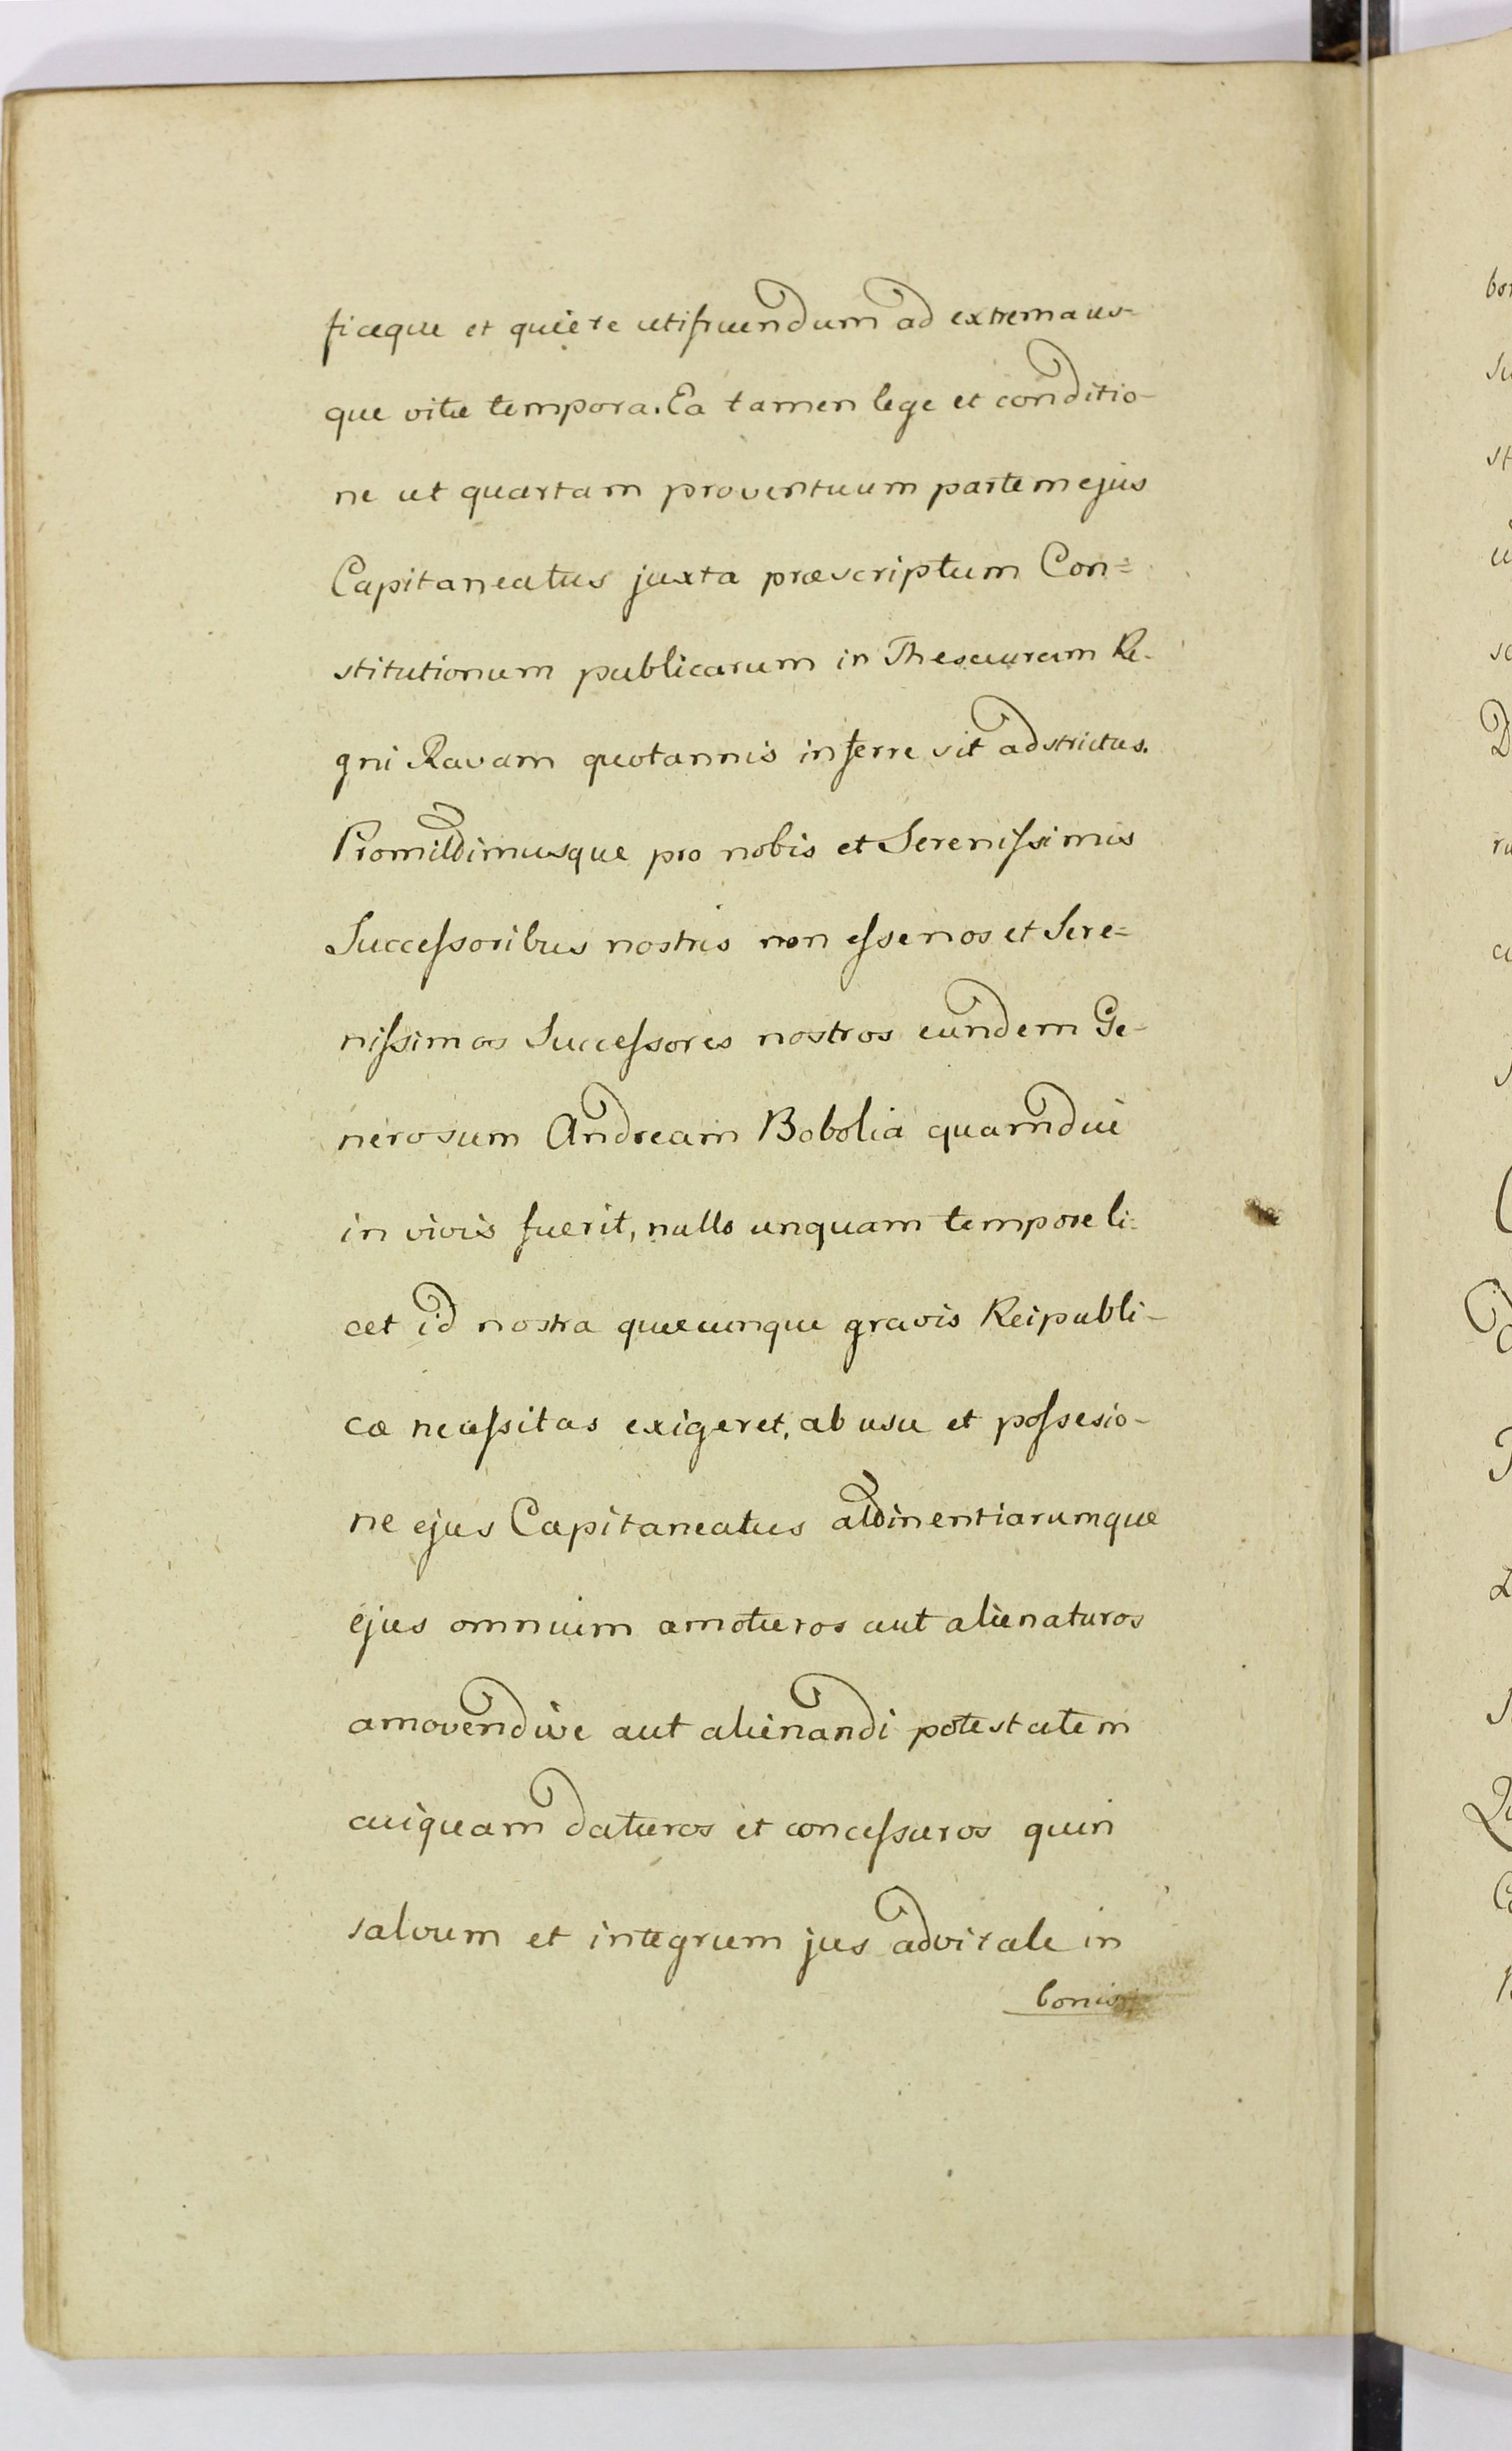 ficeque et quiete utifruendum ad extrema us-
que vitæ tempora. Ea tamen lege et conditio-
ne ut quartam proventuum partem ejus
Capitaneatus juxta præscriptum Con=
stitutionum publicarum in Thesaurum Re-
gni Ravam quotannis inferre sit adstrictus.
Promittimusque pro nobis et Serenissimis
Successoribus nostris non esse nos et Sere=
nissimos Successores nostros eundem Ge-
nerosum Andream Bobolia quamdiu
in vivis fuerit, nullo unquam tempore li-
cet id nostra quæcunque gravis Reipubli-
cæ necessitas exigeret, ab usu et possesio-
ne ejus Capitaneatus attinentiarumque
ejus omnium amoturos aut alienaturos
amovendive aut alienandi potestatem
cuiquam daturos et concessuros quin
salvum et integrum jus advitale in
bonis
bo
su
st
u
sc
D
ru
C
T
Qu